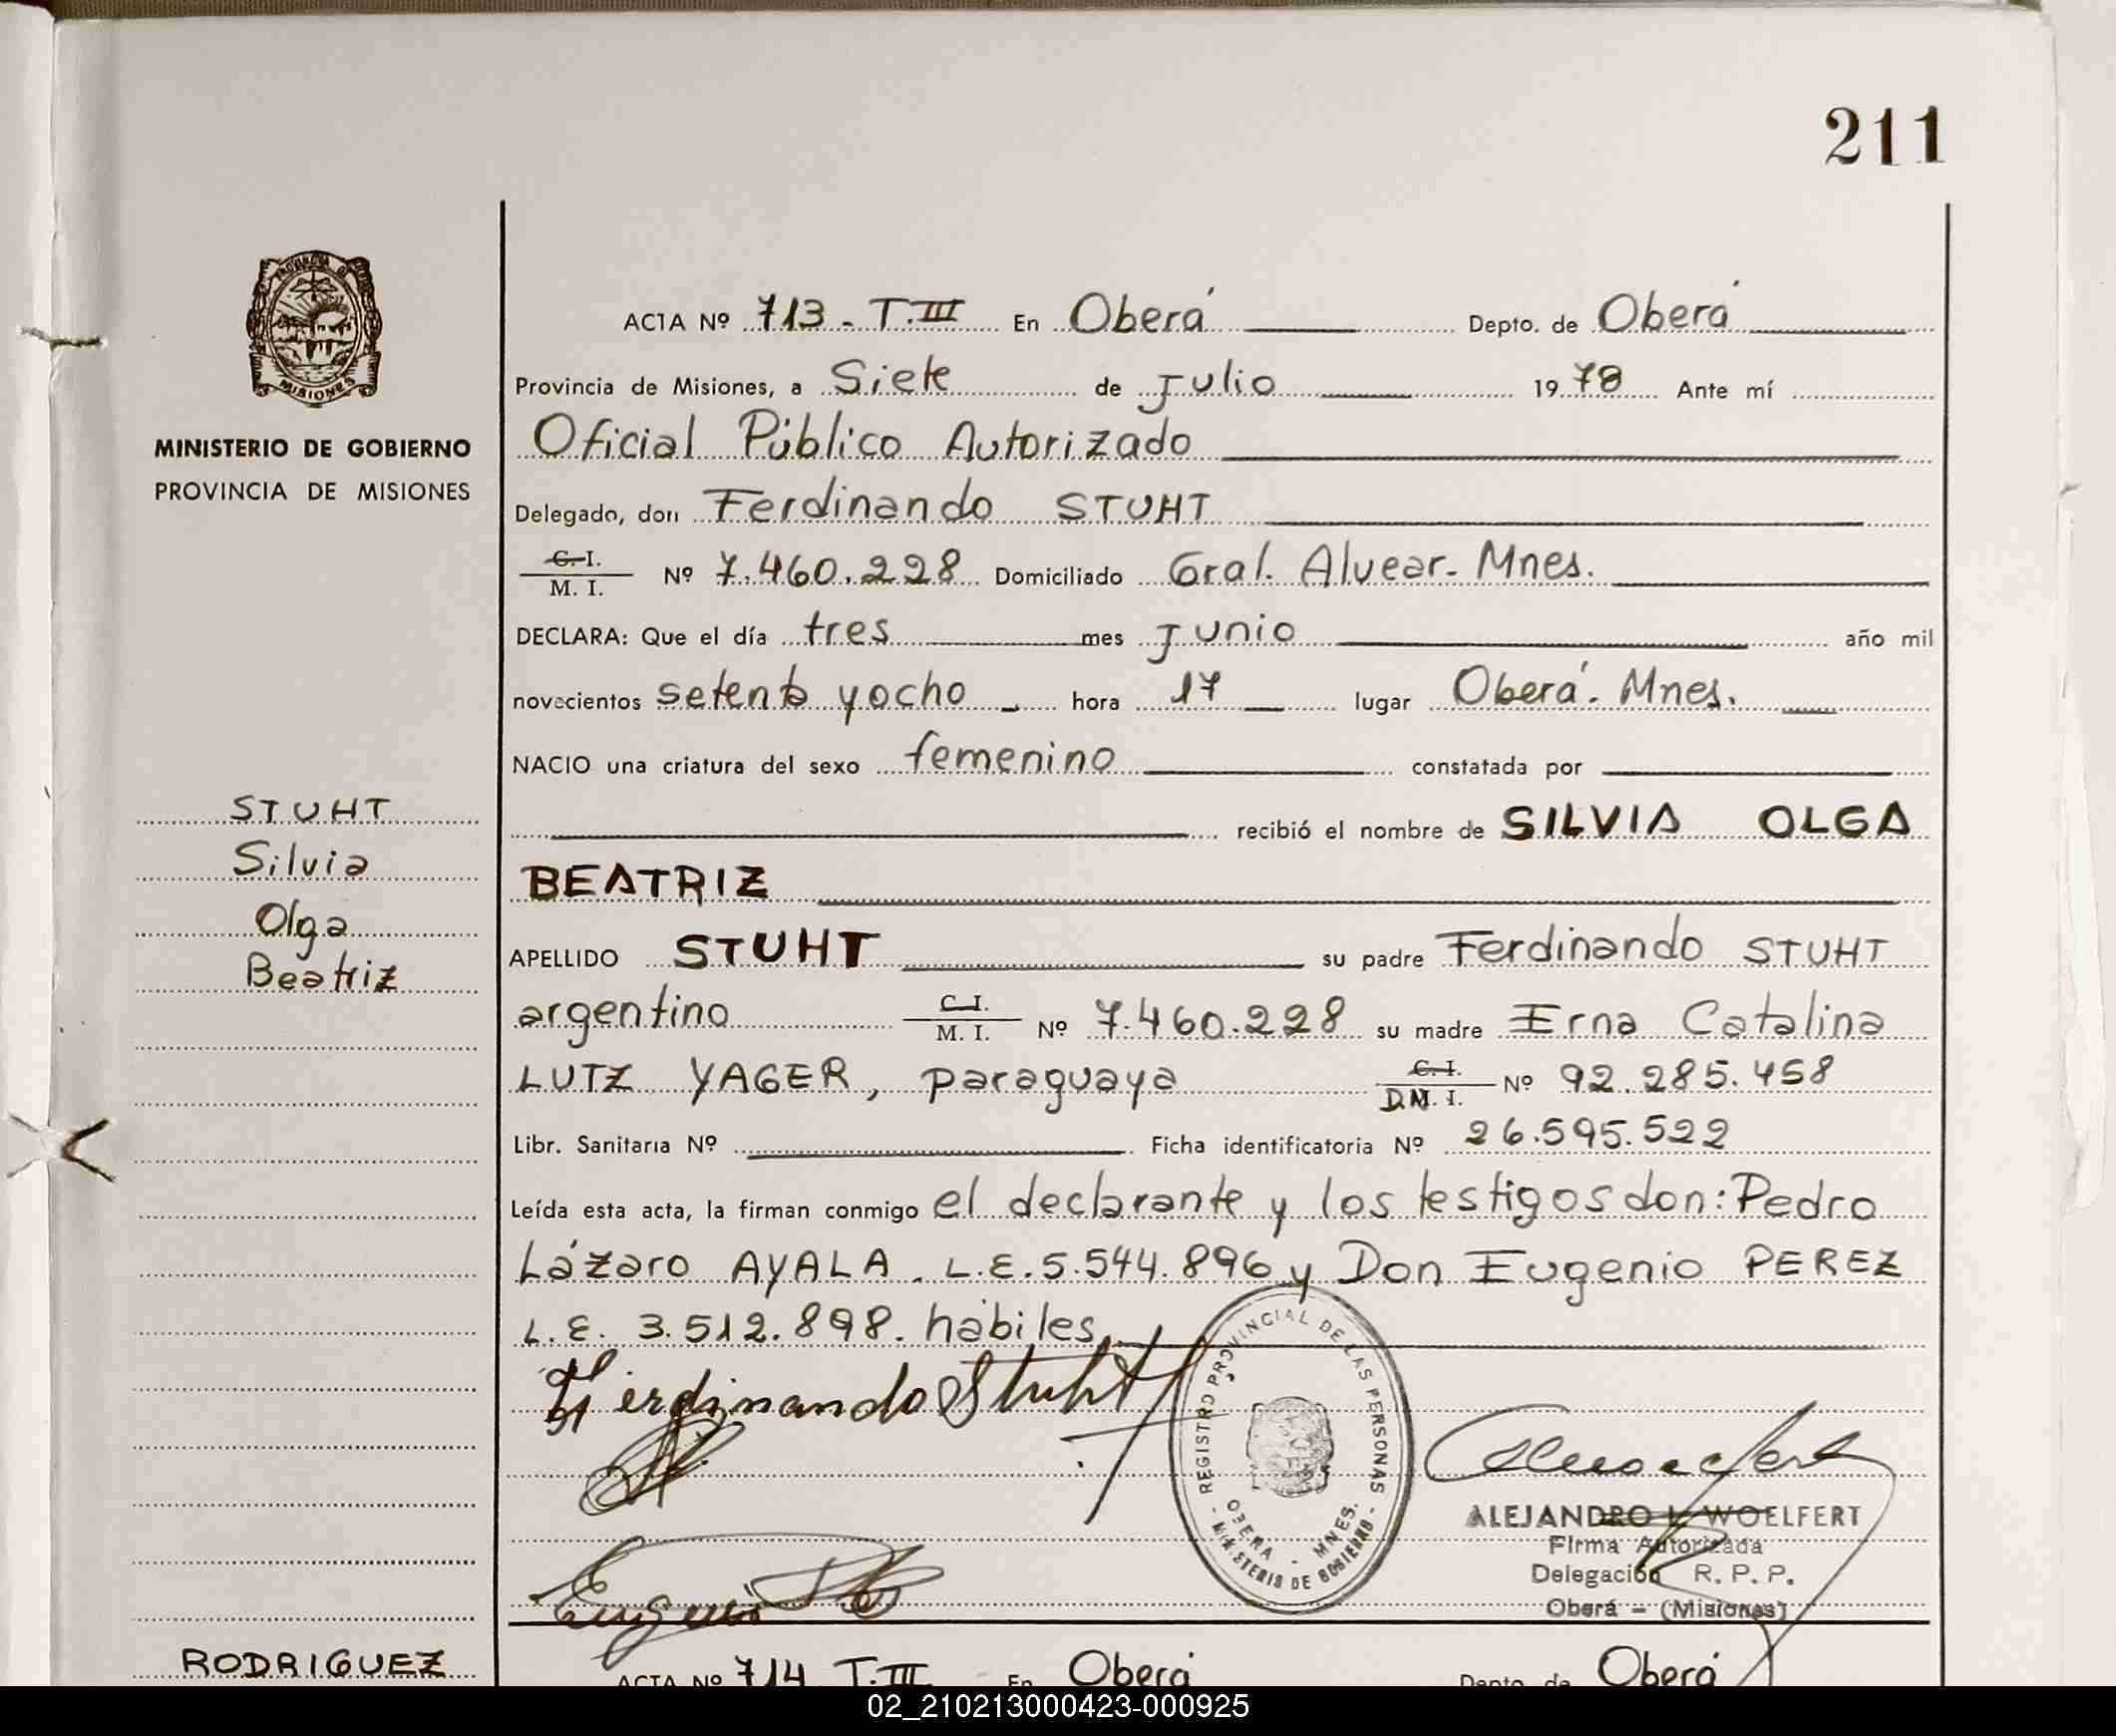 211
PROVINCIA DE
MISIONES
MINISTERIO DE GOBIERNO
PROVINCIA DE MISIONES
STUHT
Silvia
Olga
Beatriz
ACTA Nº 713 - T.III En Oberá Depto. de Oberá
Provincia de Misiones, a Siete de Julio 1978 Ante mí
Oficial Público Autorizado
Delegado, don Ferdinando STUHT
C. I.
M. I. Nº 7.460.228 Domiciliado Gral. Alvear - Mnes.
DECLARA: Que el día tres mes Junio año mil
novecientos setenta y ocho hora 17 lugar Oberá. Mnes.
NACIO una criatura del sexo femenino constatada por
recibió el nombre de SILVIA OLGA
BEATRIZ
APELLIDO STUHT su padre Ferdinando STUHT
argentino C. I. M. I. Nº 7.460.228 su madre Erna Catalina
LUTZ YAGER, paraguaya C. I. D.N. I. Nº 92.285.458
Libr. Sanitaria Nº Ficha identificatoria Nº 26.595.522
Leída esta acta, la firman conmigo el declarante y los testigos don: Pedro
Lázaro AYALA. L.E. 5.544.896 y Don Eugenio PEREZ
L.E. 3.512.898. hábiles
Ferdinando Stuht
REGISTRO PROVINCIAL DE LAS PERSONAS
OBERA - MNES.
MINISTERIO DE GOBIERNO
Eugenio
ALEJANDRO L. WOELFERT
Firma Autorizada
Delegación R. P. P.
Oberá - (Misiones)
RODRIGUEZ
ACTA Nº 714 T.III En Oberá Depto. de Oberá
02_210213000423-000925